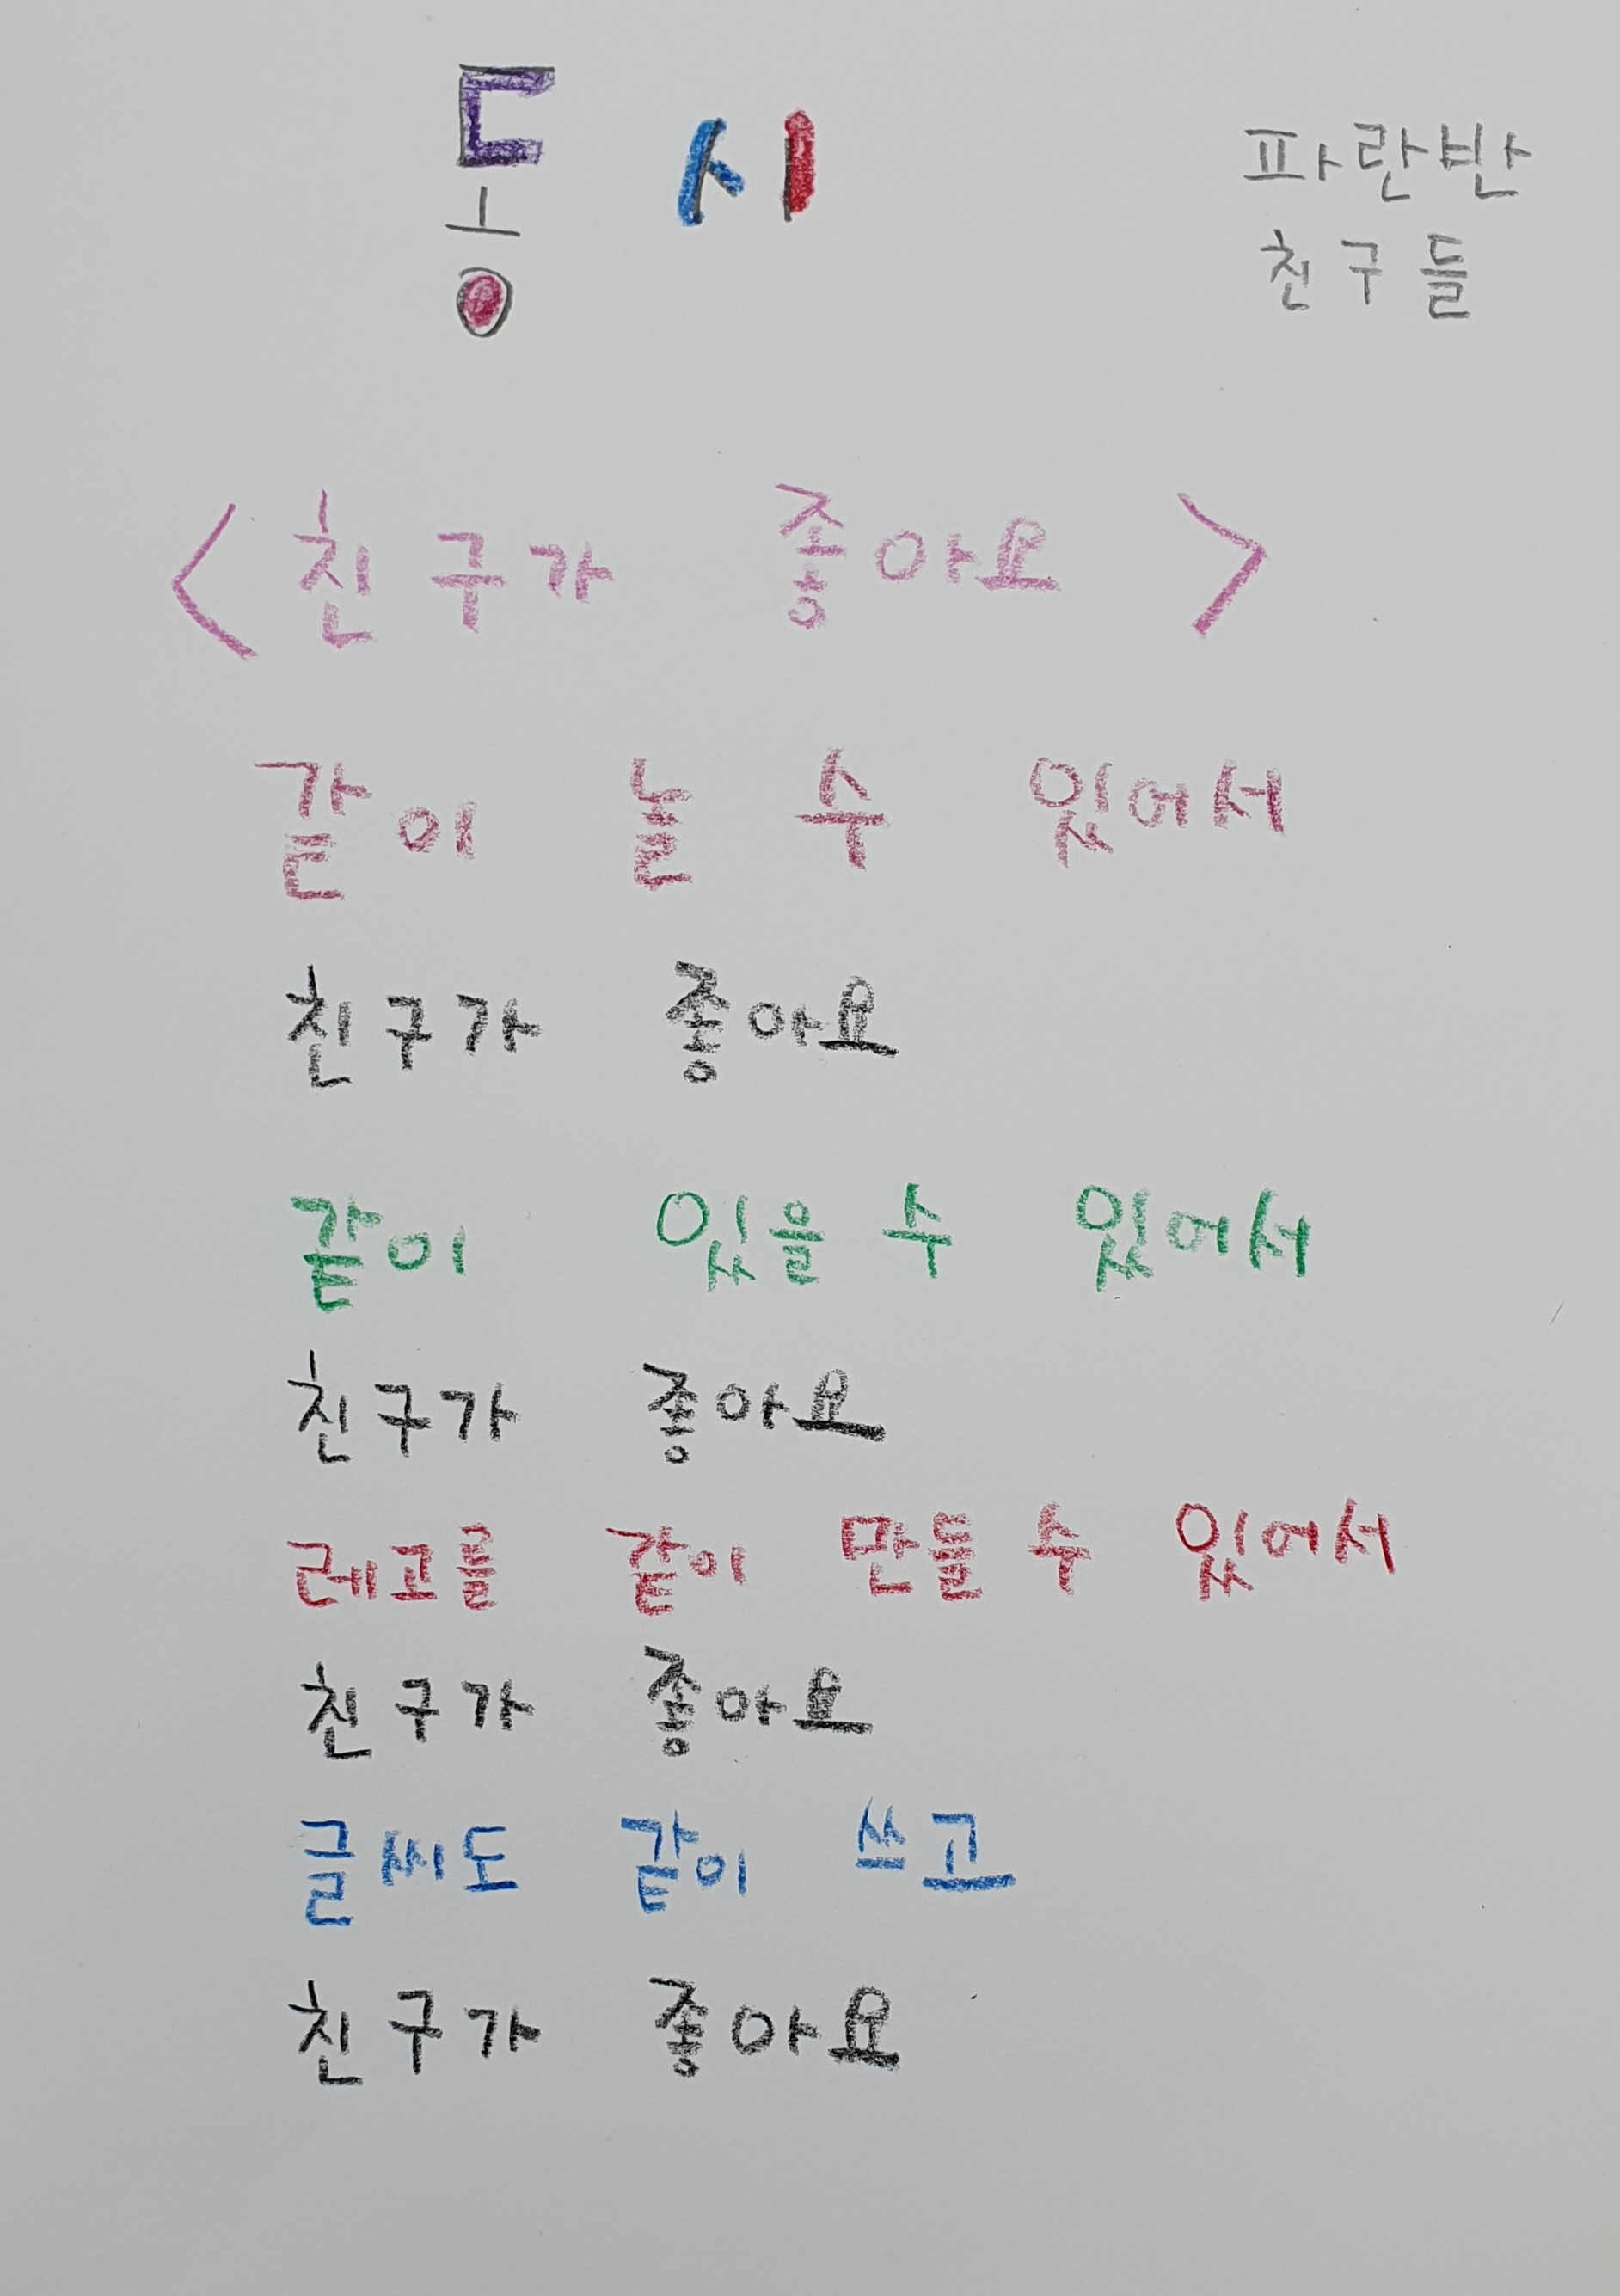 동시
파란반
친구들
<친구가 좋아요>
같이 놀 수 있어서
친구가 좋아요
같이 있을 수 있어서
친구가 좋아요
레고를 같이 만들 수 있어서
친구가 좋아요
글씨도 같이 쓰고
친구가 좋아요